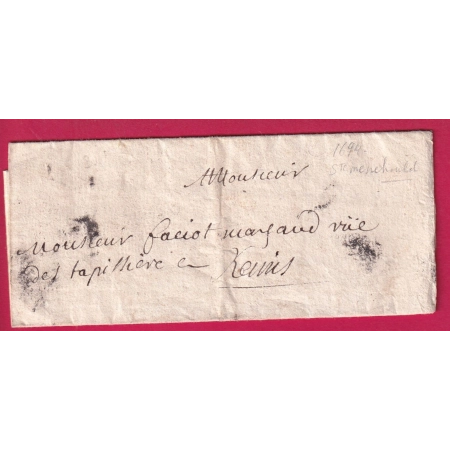 1694
Ste menehould
A Monsieur
Monsieur faciot marchand rüe
des tapissière a
Reims